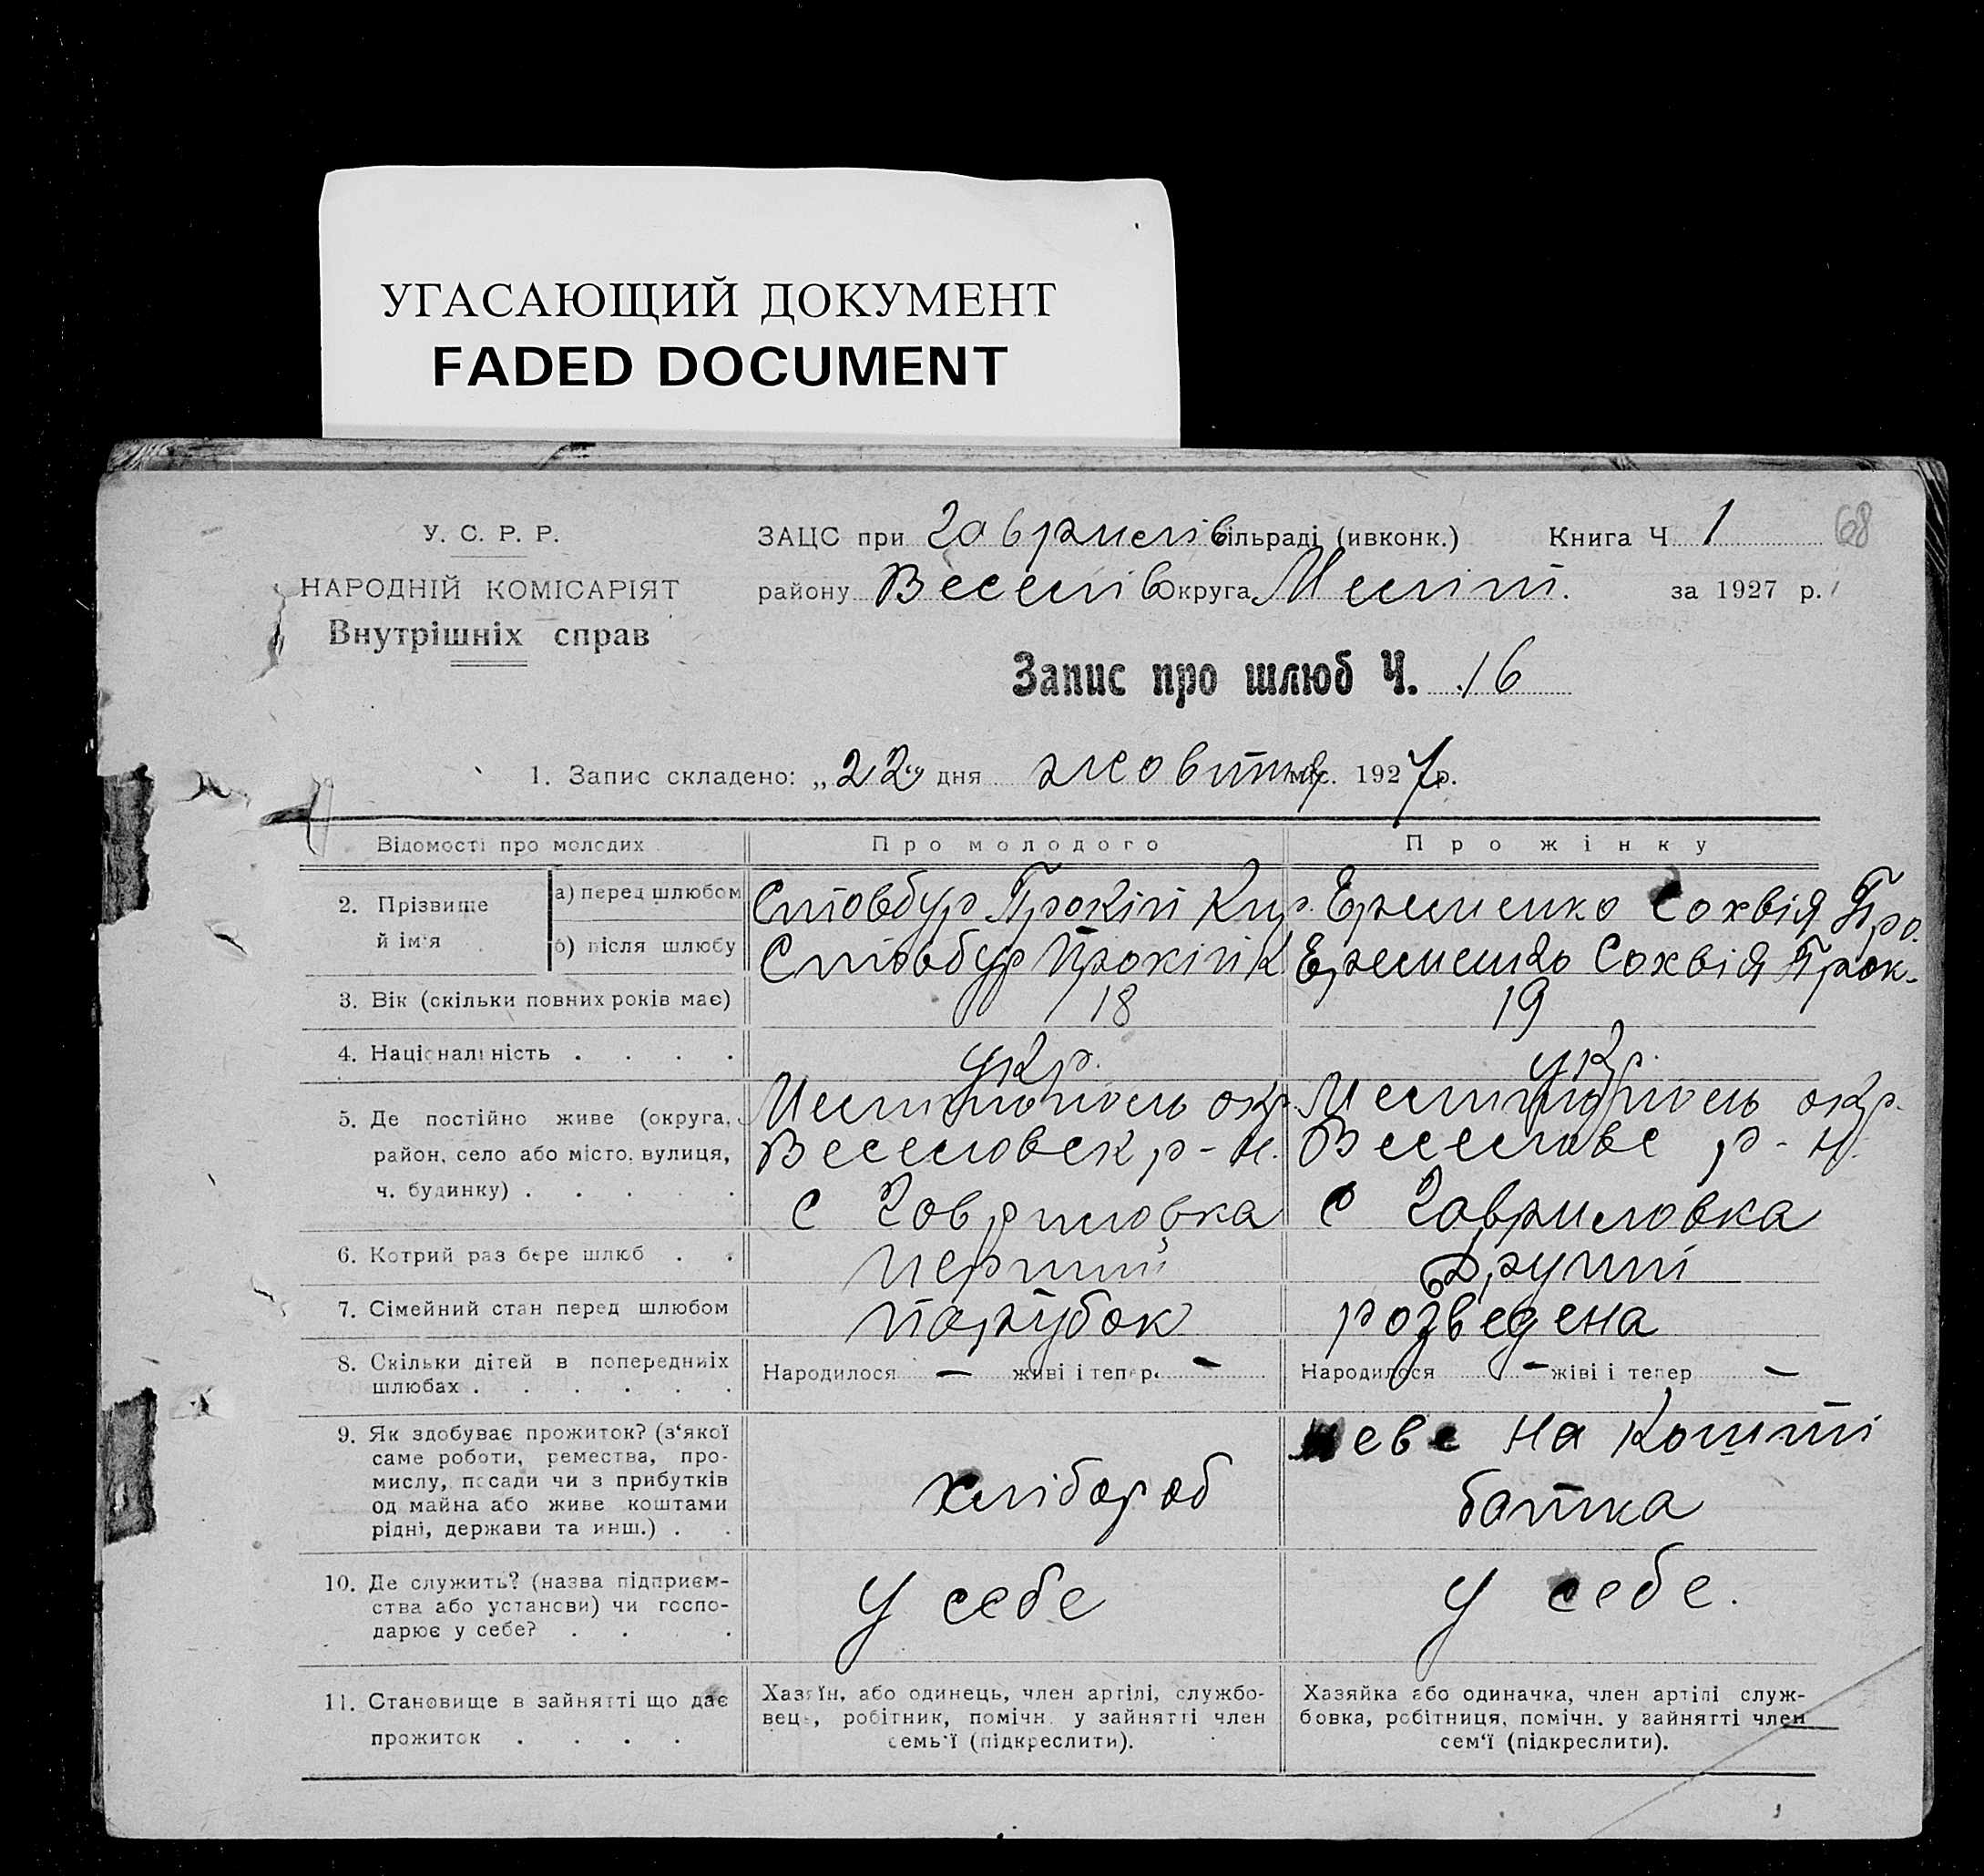 УГАСАЮЩИЙ ДОКУМЕНТ
FADED DOCUMENT
У. С. Р. Р.
НАРОДНІЙ КОМІСАРІЯТ
Внутрішніх справ
ЗАЦС при Гаврилів сільраді (ивконк.) Книга Ч 1 68
району Веселів округа Меліт. за 1927 р.
Запис про шлюб Ч. 16
1. Запис складено: „22" дня жовтня міс. 1927 р.
Відомості про молодих Про молодого Про жінку
2. Прізвище й ім'я
а) перед шлюбом Стовбур Прокіп Кир. Еременко Сохвія Про.
б) після шлюбу Стовбур Прокіп К Еременко Сохвія Прок.
3. Вік (скільки повних років має) 18 19
4. Національність . . . . укр. укр.
5. Де постійно живе (округа, Мелітополь окр. Мелітополь окр.
район, село або місто, вулиця, Веселовск р-н. Веселовс р-н.
ч. будинку) . . . . . с Гавриловка с Гавриловка
6. Котрий раз бере шлюб . . перший другий
7. Сімейний стан перед шлюбом парубок розведена
8. Скільки дітей в попередниіх Народилося — живі і тепер. — Народилося — жіві і тепер —
шлюбах . . . . . .
9. Як здобуває прожиток? (з'якої
саме роботи, ремества, про-
мислу, посади чи з прибутків
од майна або живе коштами
рідні, держави та инш.) . .
хлібороб
на кошті
батка
10. Де служить? (назва підприєм-
ства або установи) чи госпо-
дарює у себе? . . .
у себе у себе.
11. Становище в зайнятті що дає
прожиток . . . .
Хазяїн, або одинець, член артілі, службо-
вець, робітник, помічн. у зайнятті член
семь'ї (підкреслити).
Хазяйка або одиначка, член артілі служ-
бовка, робітниця, помічн. у зайнятті член
сем'ї (підкреслити).